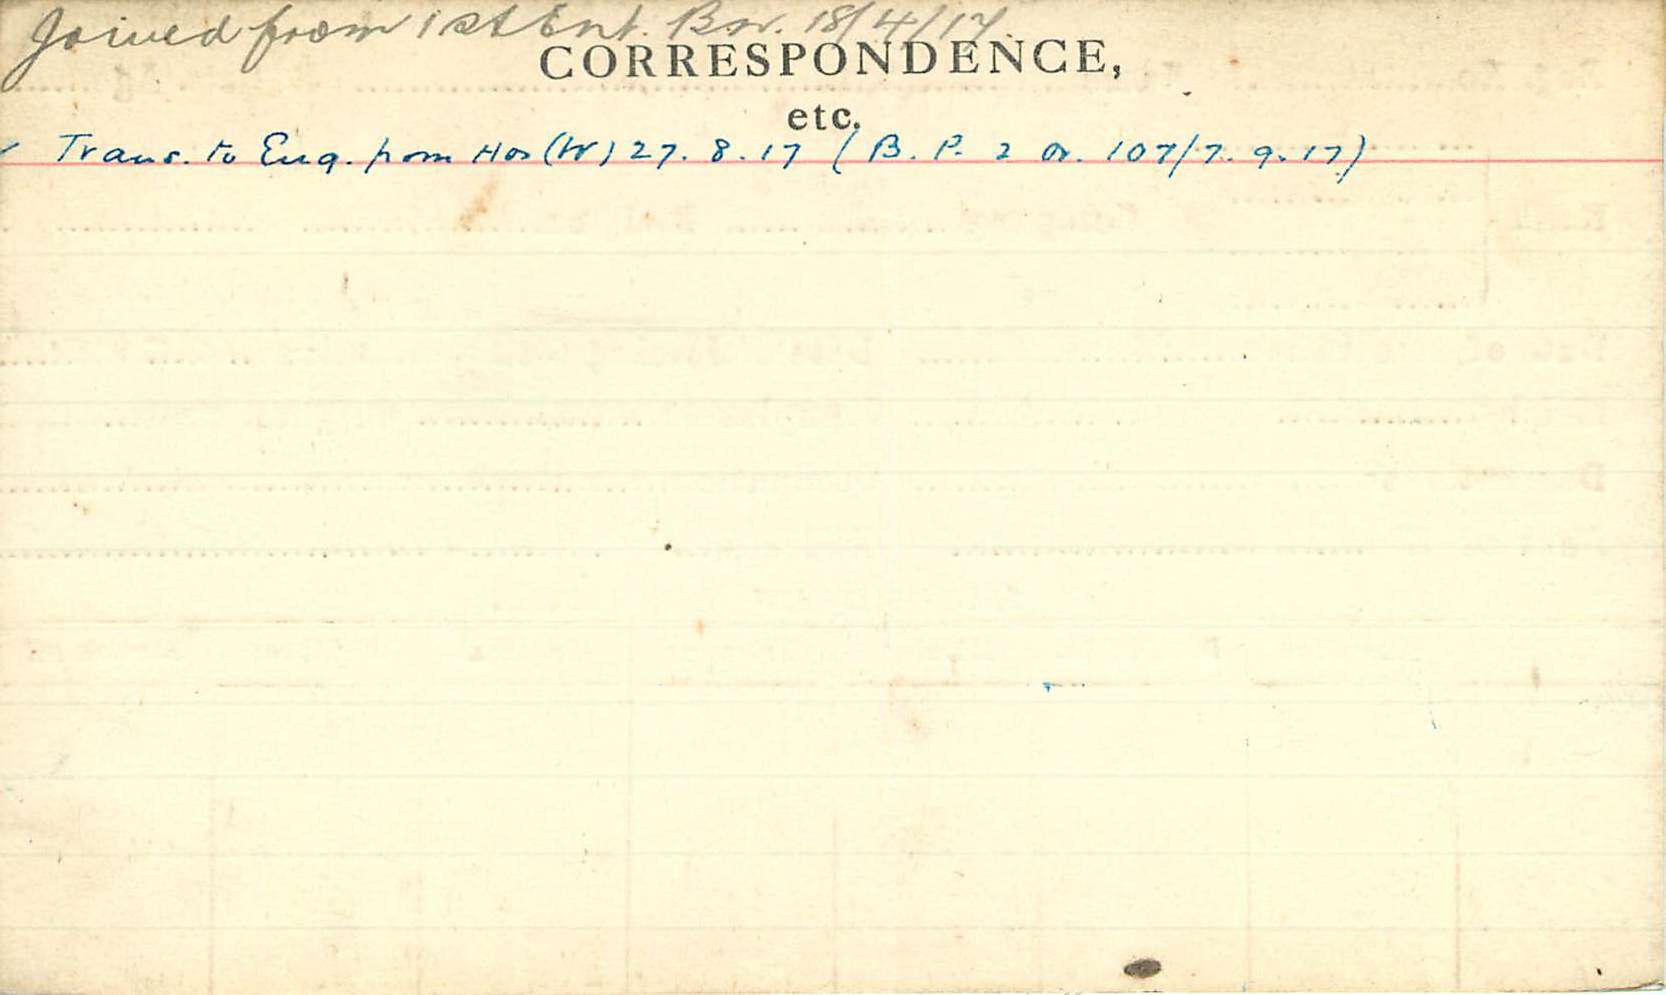 Joined from 1st Ent. Bn. 18/4/17.
CORRESPONDENCE,
etc.
Trans. to Eng. from Hos (W) 27. 8. 17 ( B. P. 2 Or. 107/7. 9. 17)